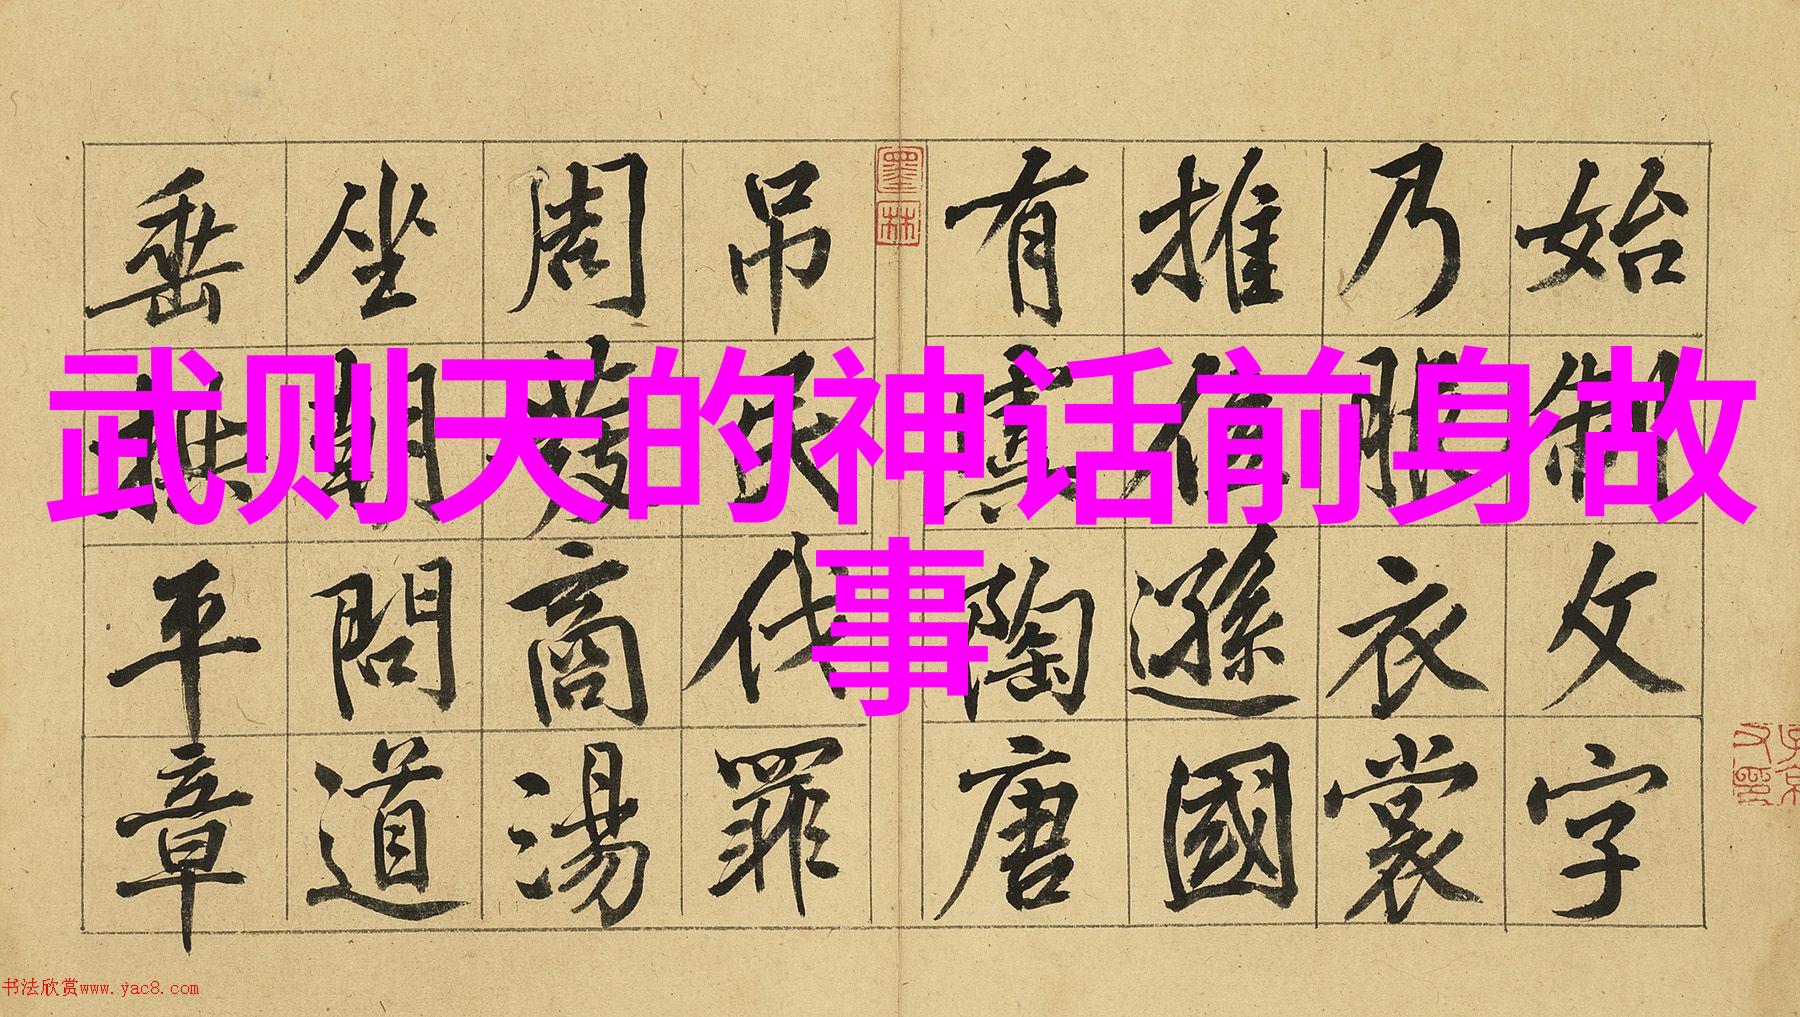 武则天的神话前身故
事
始制文字
乃服衣裳
推位遜國
有虞陶唐
吊民伐罪
周發商湯
坐朝問道
垂拱平章
墨林
书法欣赏www.yac8.com